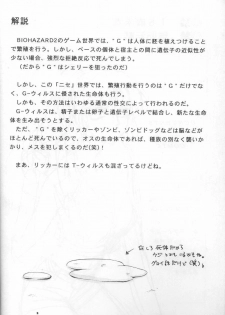 解説
BIOHAZARD2のゲーム世界では、“G”は人体に胚を植えつけること
で繁殖を行う。しかし、ベースの個体と宿主との間に遺伝子の近似性が
少ない場合、強烈な拒絶反応で死んでしまう。
(だから“G”はシェリーを狙ったのだ)
しかし、この「ニセ」世界では、繁殖行動を行うのは“G”だけでな
く、G-ウィルスに侵された生命体も行う。
しかも、その方法はいわゆる通常の性交によって行われるのだ。
G-ウィルスは、精子または卵子と遺伝子レベルで結合し、新たな生命
体を生み出そうとする。
ただ、“G”を除くリッカーやゾンビ、ゾンビドッグなどは脳などが
ほとんど死んでいるので、オスの生命体であれば、種族の別なく襲いか
かり、メスを犯しまくるのだ(笑)!
まあ、リッカーには T-ウィルスも混ざってるけどね。